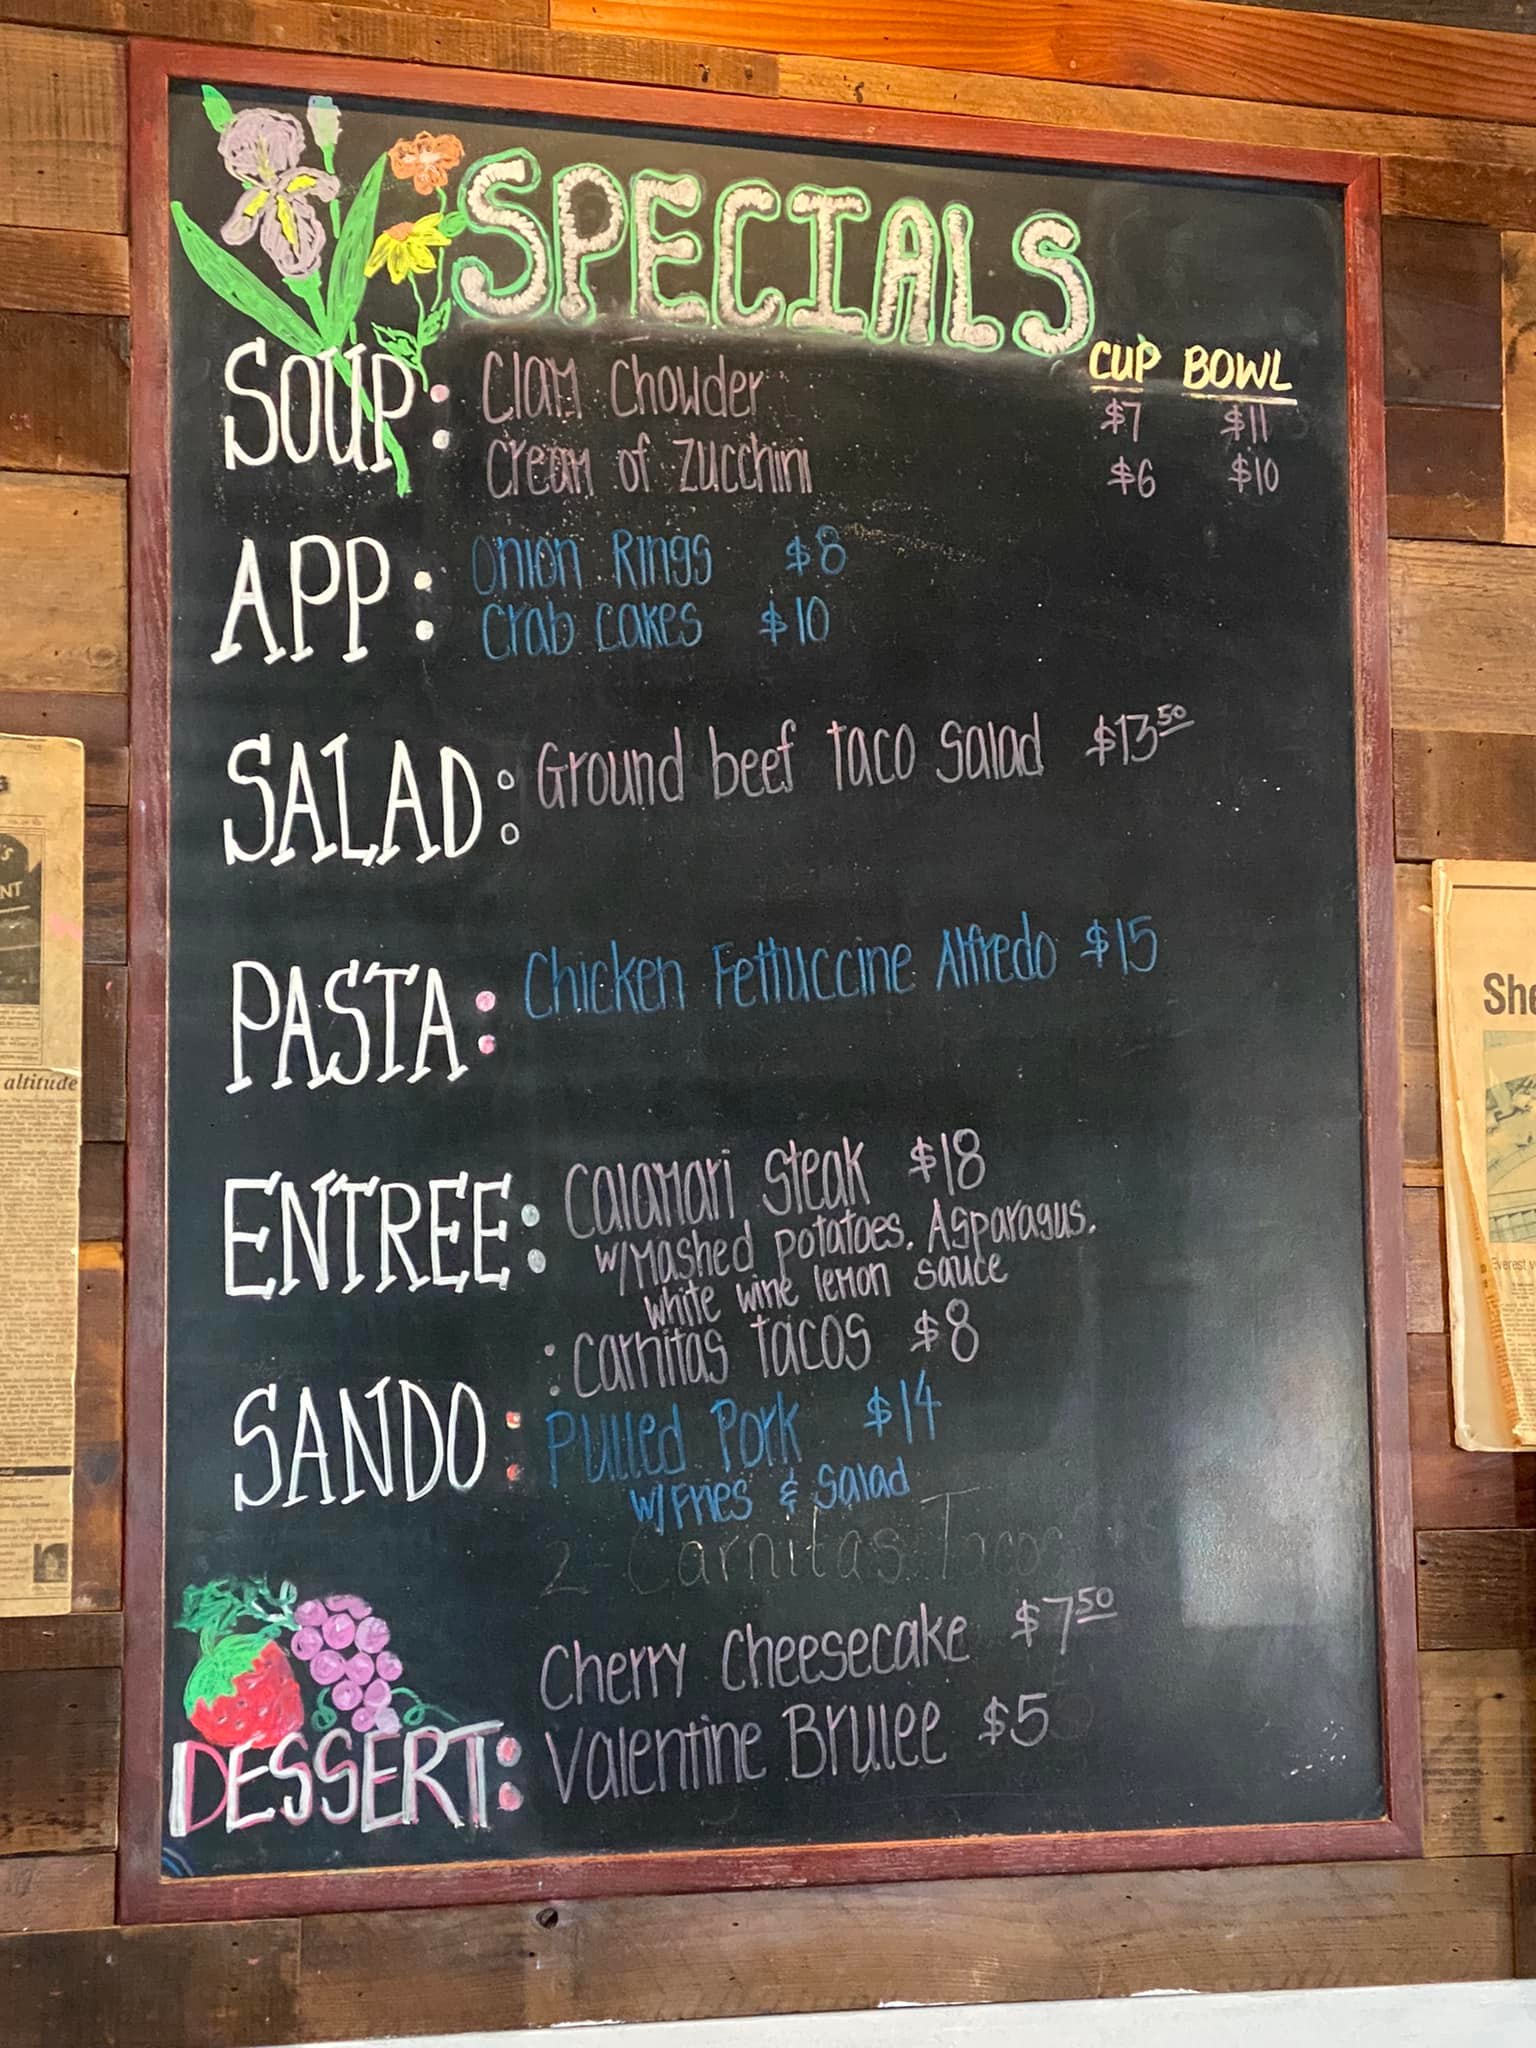 SPECIALS
CUP BOWL
SOUP: Clam Chowder $7 $11
Cream of Zucchini $6 $10
APP: Onion Rings $8
Crab Cakes $10
SALAD: Ground beef taco Salad $13.50
PASTA: Chicken Fettuccine Alfredo $15
ENTREE: Calamari Steak $18
w/Mashed potatoes, Asparagus,
white wine lemon sauce
: Carnitas Tacos $8
SANDO: Pulled Pork $14
w/Fries & Salad
2 - Carnitas Tacos
Cherry Cheesecake $7.50
DESSERT: Valentine Brulee $5
altitude
She
Everest